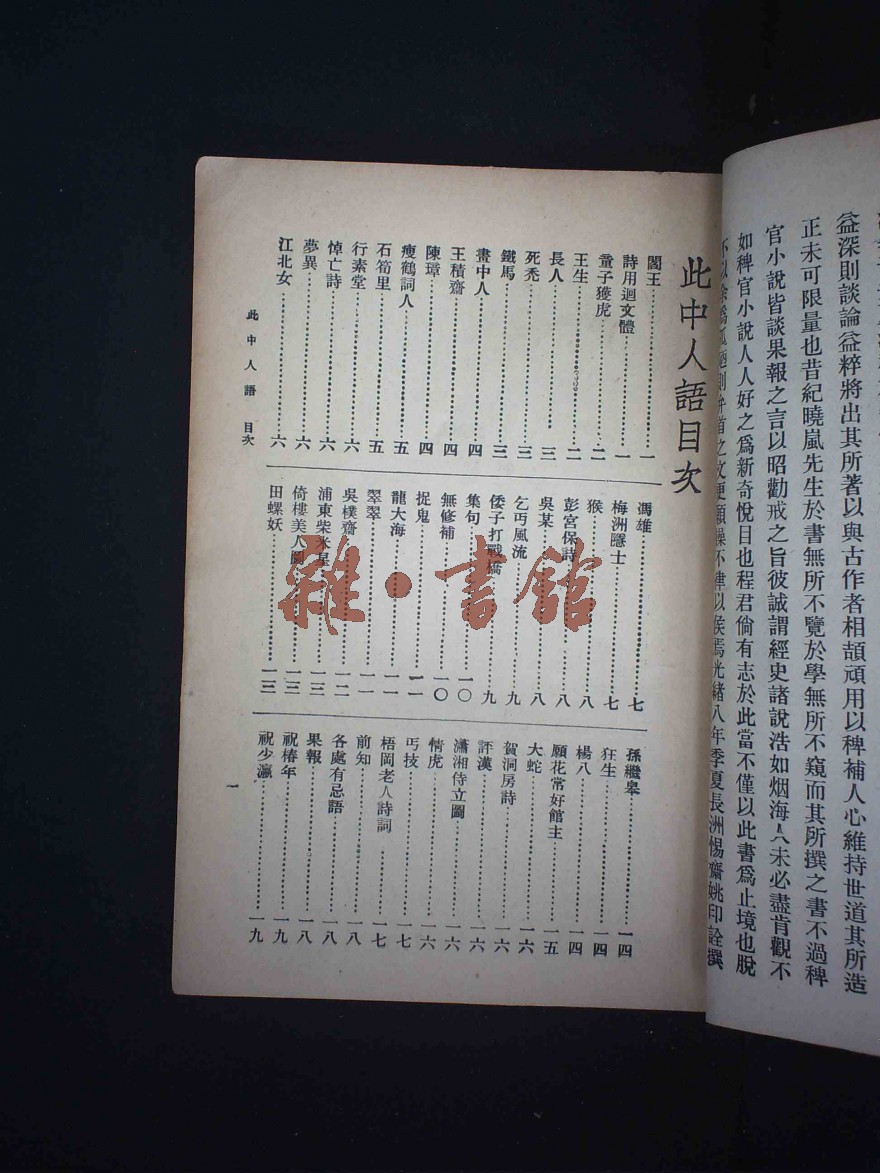 益深則談論益粹將出其所著以與古作者相頡頏用以稗補人心維持世道其所造
正未可限量也昔紀曉嵐先生於書無所不覽於學無所不窺而其所撰之書不過稗
官小說皆談果報之言以昭勸戒之旨彼誠謂經史諸說浩如烟海人未必盡肯觀不
如稗官小說人人好之爲新奇悅目也程君倘有志於此當不僅以此書爲止境也脫
則弁首之文更願操不律以俟焉光緒八年季夏長洲惕齋姚印詮撰
此中人語目次
閻王……一
詩用迴文體……一
童子獲虎……二
王生……二
長人……二
死禿……三
鐵馬……三
畫中人……四
王積齋……四
陳璋……四
瘦鶴詞人……五
石筍里……五
行素堂……六
悼亡詩……六
夢異……六
江北女……六
馮雄……七
梅洲隱士……七
猴……八
彭宮保詩……八
吳某……八
乞丐風流……九
倭子打戰橋……九
集句……一〇
無修補……一〇
捉鬼……一一
龍大海……一一
翠翠……一一
吳樸齋……一二
浦東柴米星……一三
倚樓美人圖……一三
田螺妖……一三
孫繼皋……一四
狂生……一四
楊八……一四
願花常好館主……一五
大蛇……一六
賀洞房詩……一六
評漢……一六
瀟湘侍立圖……一六
情虎……一六
丐技……一七
梧岡老人詩詞……一七
前知……一八
各處有忌語……一八
果報……一八
祝椿年……一九
祝少瀛……一九
此中人語 目次
一
雜·書館